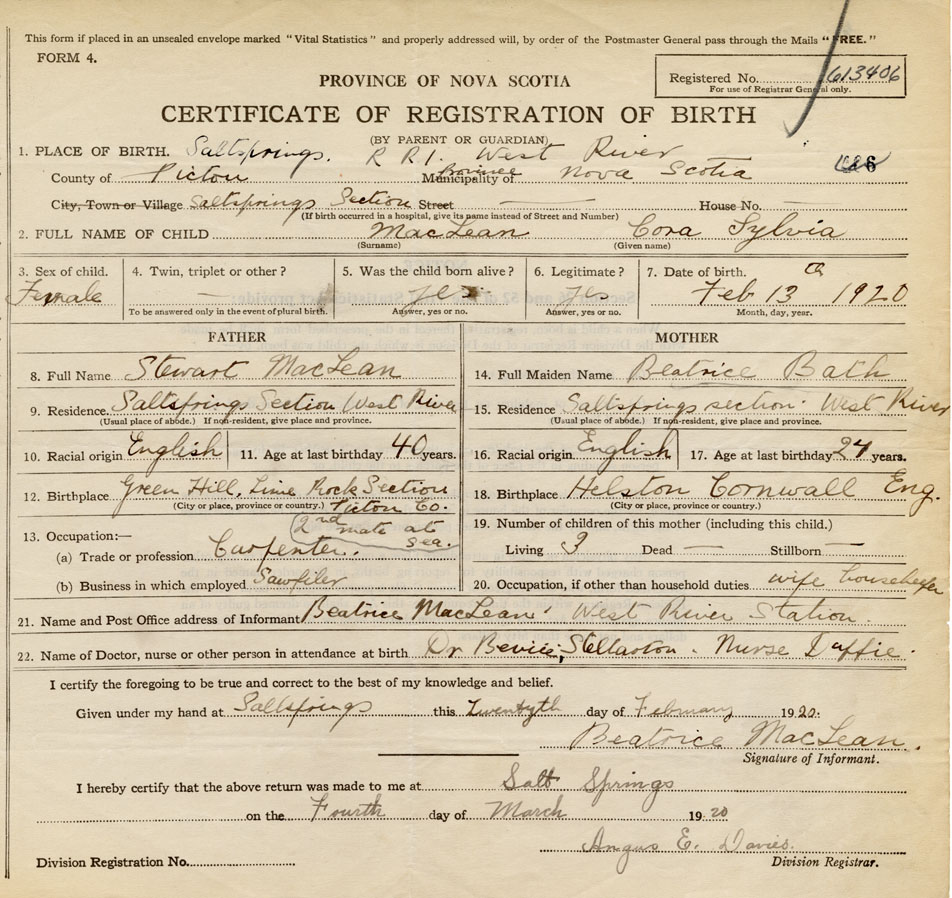 This form if placed in an unsealed envelope marked "Vital Statistics" and properly addressed will, by order of the Postmaster General pass through the Mails "FREE."
FORM 4.
PROVINCE OF NOVA SCOTIA
Registered No. 613406
For use of Registrar General only.
CERTIFICATE OF REGISTRATION OF BIRTH
(BY PARENT OR GUARDIAN)
1. PLACE OF BIRTH. Saltsprings. R R 1. West River
County of Pictou Municipality of Province Nova Scotia
6
City, Town or Village Saltsprings Section Street — House No. —
(If birth occurred in a hospital, give its name instead of Street and Number)
2. FULL NAME OF CHILD MacLean Cora Sylvia
(Surname) (Given name)
3. Sex of child. 4. Twin, triplet or other? 5. Was the child born alive? 6. Legitimate? 7. Date of birth.
Female — yes yes Feb 13th 1920
To be answered only in the event of plural birth. Answer, yes or no. Answer, yes or no. Month, day, year.
FATHER
8. Full Name Stewart MacLean
9. Residence. Saltsprings Section West River
(Usual place of abode.) If non-resident, give place and province.
10. Racial origin English 11. Age at last birthday 40 years.
12. Birthplace Green Hill, Lime Rock Section
(City or place, province or country.) Pictou Co.
13. Occupation:— (2nd mate at sea.
(a) Trade or profession Carpenter.
(b) Business in which employed Sawfiler
MOTHER
14. Full Maiden Name Beatrice Bath
15. Residence Saltsprings section West River
(Usual place of abode.) If non-resident, give place and province.
16. Racial origin English 17. Age at last birthday 27 years.
18. Birthplace Helston Cornwall Eng.
(City or place, province or country.)
19. Number of children of this mother (including this child.)
Living 3 Dead — Stillborn —
20. Occupation, if other than household duties wife housekeeper
21. Name and Post Office address of Informant Beatrice MacLean West River Station.
22. Name of Doctor, nurse or other person in attendance at birth Dr Stellarton. Nurse Duffie.
I certify the foregoing to be true and correct to the best of my knowledge and belief.
Given under my hand at Saltsprings this Twentyth day of February 1920.
Beatrice MacLean.
Signature of Informant.
I hereby certify that the above return was made to me at Salt Springs
on the Fourth day of March 1920
Angus E. Davies.
Division Registration No. Division Registrar.